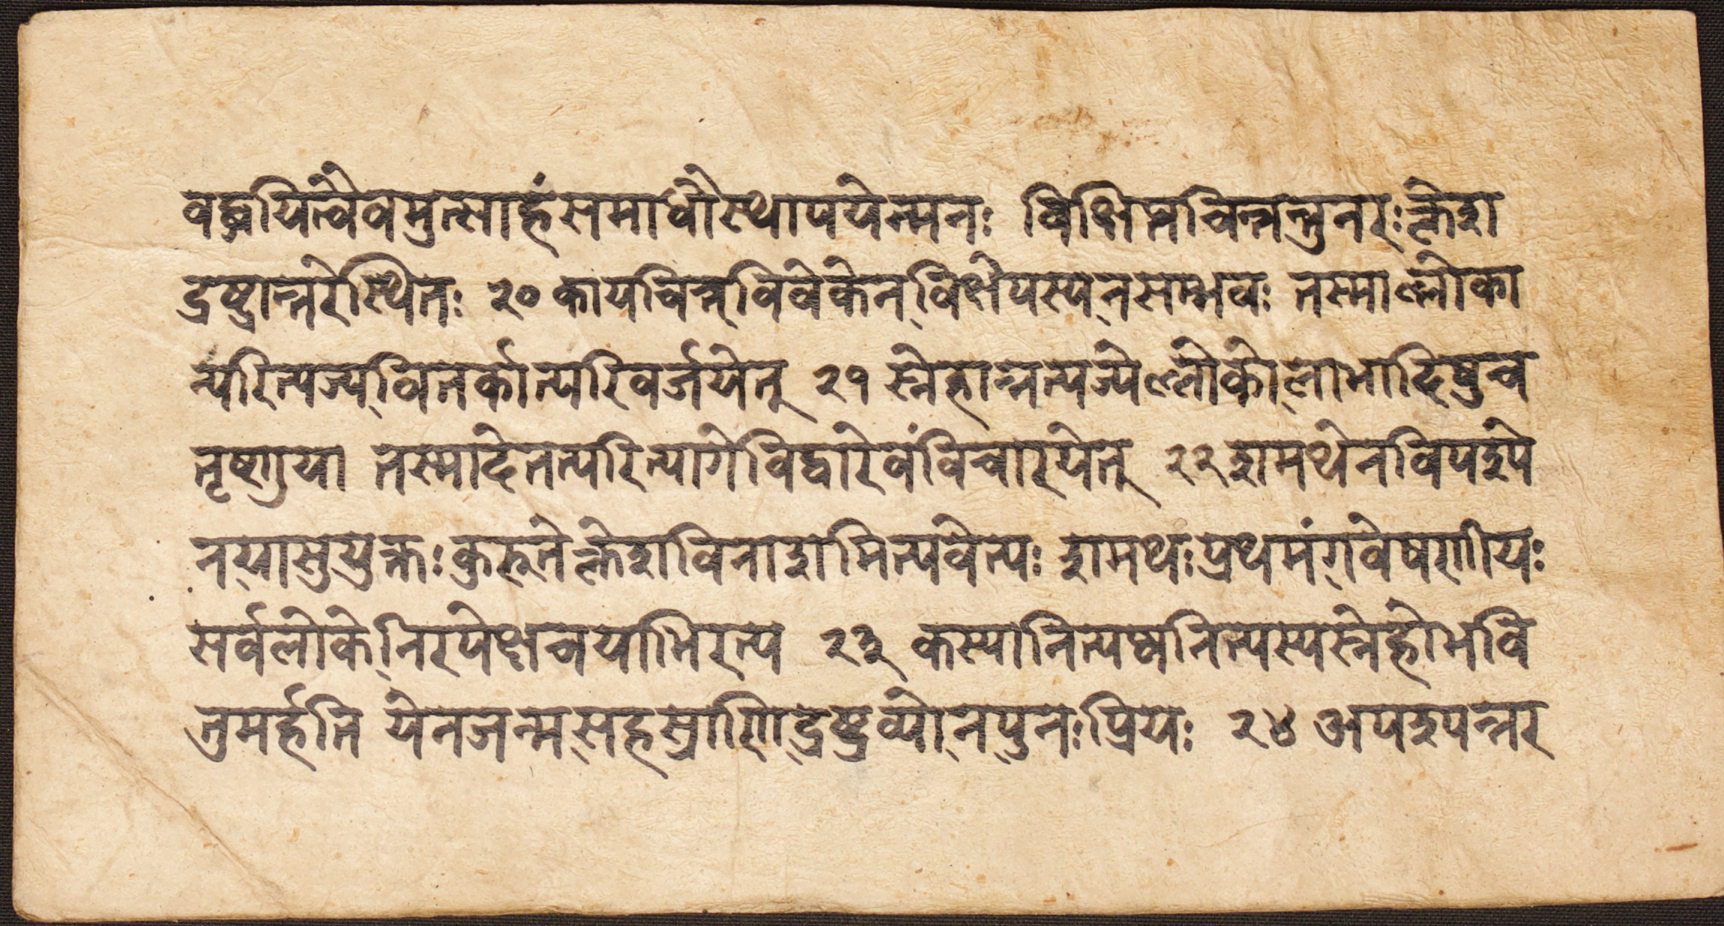 वर्द्धयित्वैवमुत्साहं समाधौ स्थापयेन्मनः विक्षिप्तचित्तस्तु नरः क्लेश
द्रंष्ट्रान्तरे स्थितः २० कायचित्तविवेकेन विक्षेपस्य न सम्भवः तस्माल्लोका
न्परित्यज्य वितर्कान्परिवर्जयेत् २१ स्नेहान्नत्यज्येल्लोको लाभादिषु च
तृष्णया तस्मादेतत्परित्यागे विद्वारेवं विचारयेत् २२ शमथेन विपश्ये
नयासुयुक्तः कुरुते क्लेशविनाशमित्यवेत्यः शमथः प्रथमं गवेषणीयः
सर्वलोके निरपेक्षञ्चयाभिरत्य २३ कस्यानित्यष्वनित्यस्य स्नेहो भवि
तुमर्हति येन जन्मसहस्राणि द्रष्टव्यो न पुनः प्रियः २४ अपश्यन्नर